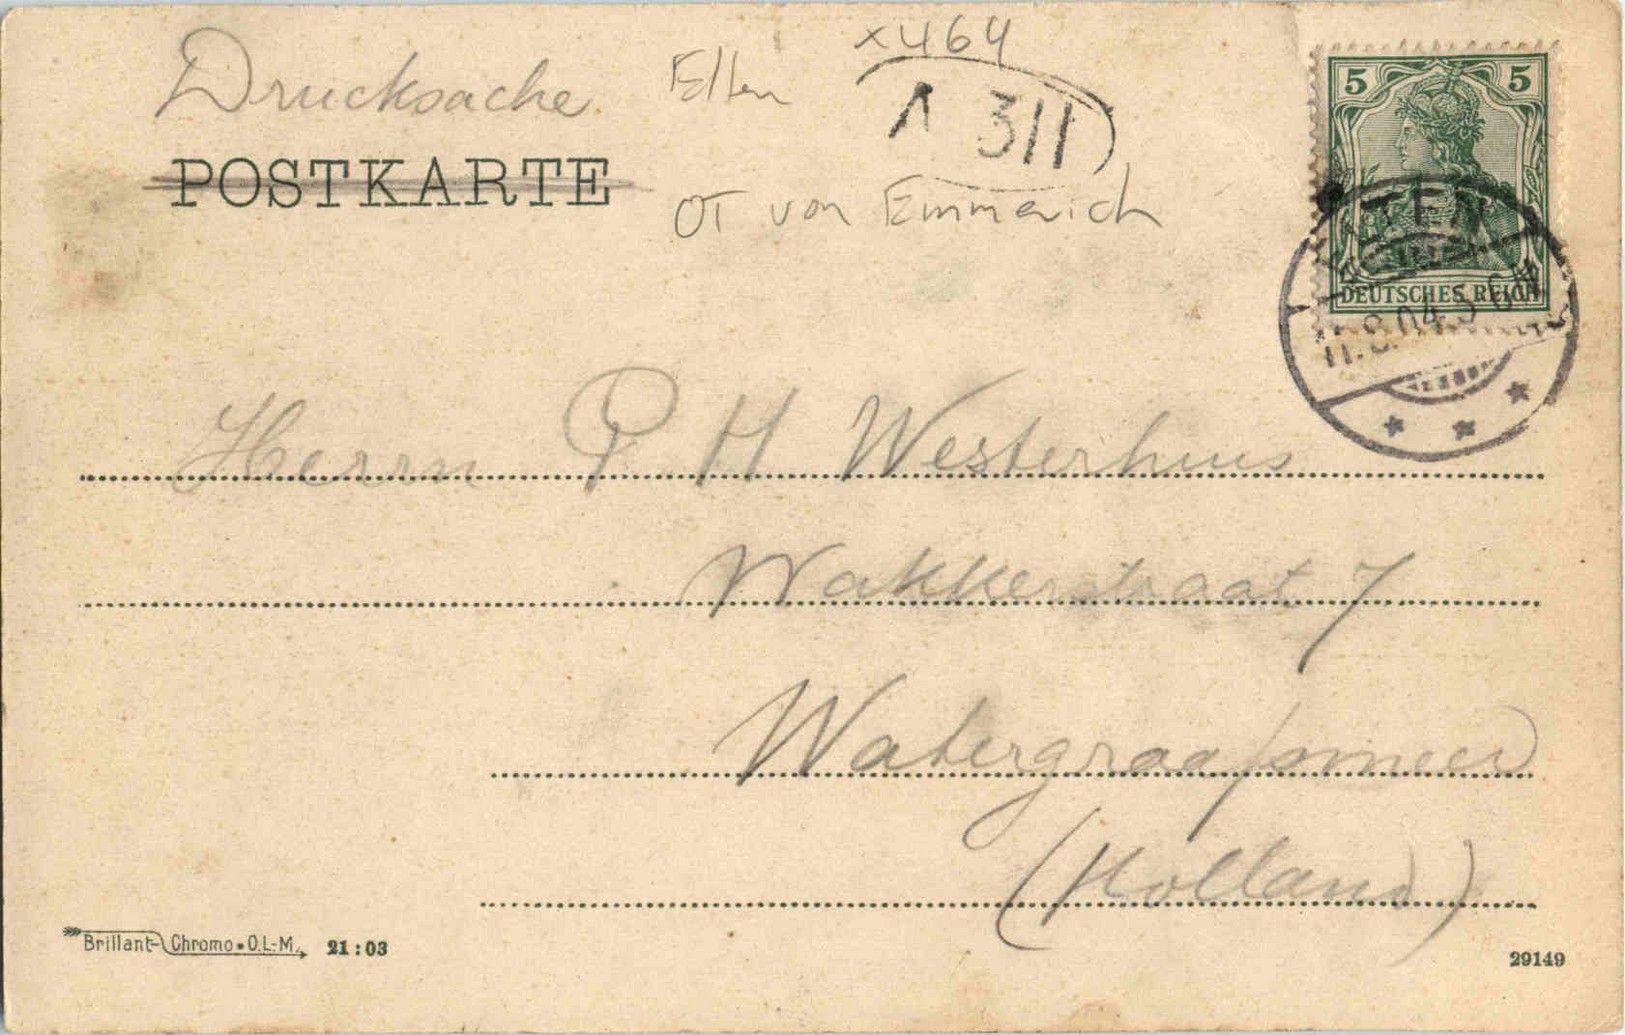 x464
Drucksache
Elten
1 311
POSTKARTE
OT von Emmerich
5 5
DEUTSCHES REICH
ELTEN
11.8.04.5-6 N
Herrn P H Westerhuis
Wakkerstraat 7
Watergraafsmeer
(Holland)
Brillant-Chromo • O.L-M. 21:03
29149